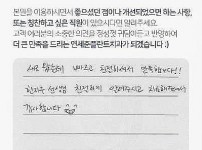 본원을 이용하시면서 좋으셨던 점이나 개선되었으면 하는 사항,
또는 칭찬하고 싶은 직원이 있으시다면 알려주세요.
고객 여러분의 소중한 의견을 정성껏 귀담아듣고 반영하여
더 큰 만족을 드리는 연세준플란트치과가 되겠습니다 :)
빠르고 친절하셔서 만족합니다!!
선생님 친절하게
감사합니다